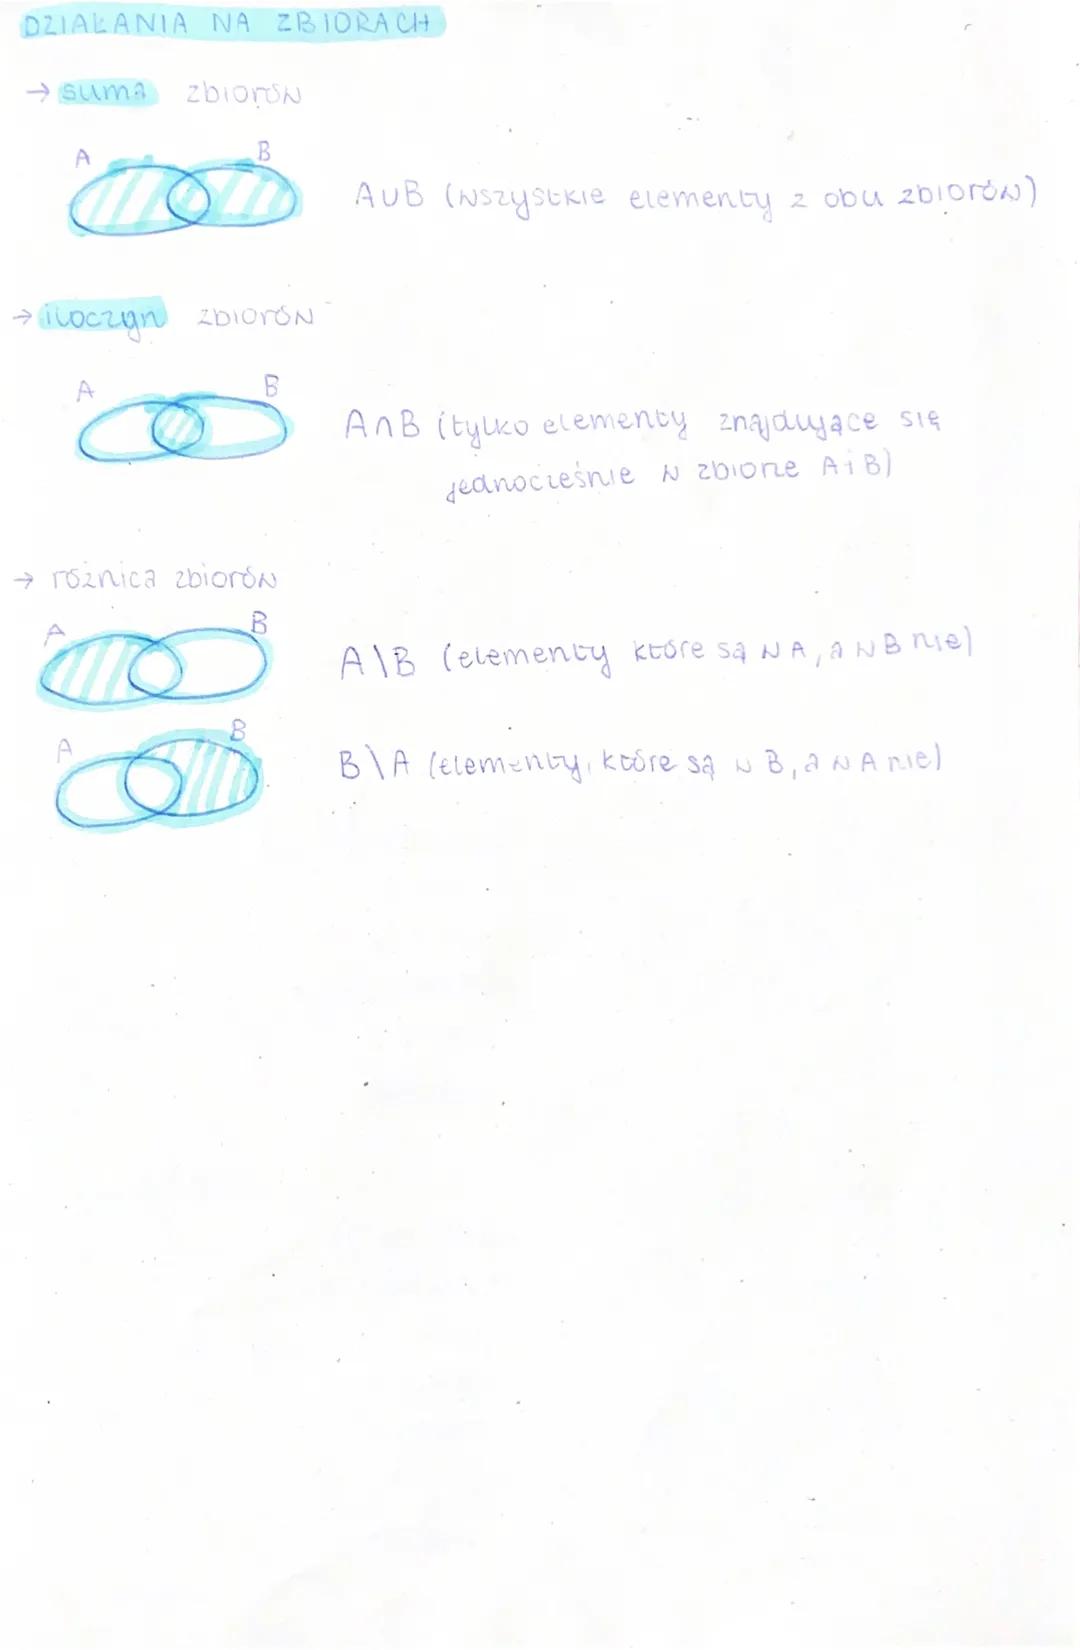 DZIAŁANIA NA ZBIORACH
→ suma zbiorów
A B
A∪B (wszystkie elementy z obu zbiorów)
→ iloczyn zbiorów
A B
A∩B (tylko elementy znajdujące się
jednocześnie w zbiorze A i B)
→ różnica zbiorów
A B
A\B (elementy które są w A, a w B nie)
A B
B\A (elementy, które są w B, a w A nie)